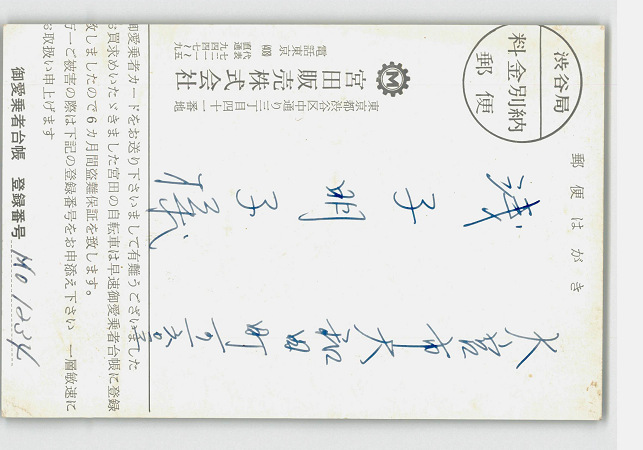 渋谷局
料金別納
郵便
郵便はがき
大宮市大和田町
浅子明子様
東京都渋谷区中通り三丁目四十一番地
宮田販売株式会社
電話東京
御愛乗者カードをお送り下さいまして有難うございました
お買求めいたゞきました宮田の自転車は早速御愛乗者台帳に登録
致しましたので6カ月間盗難保証を致します。
万一ご被害の際は下記の登録番号をお申添え下さい 一層敏速に
お取扱い申上げます
御愛乗者台帳 登録番号 M01234